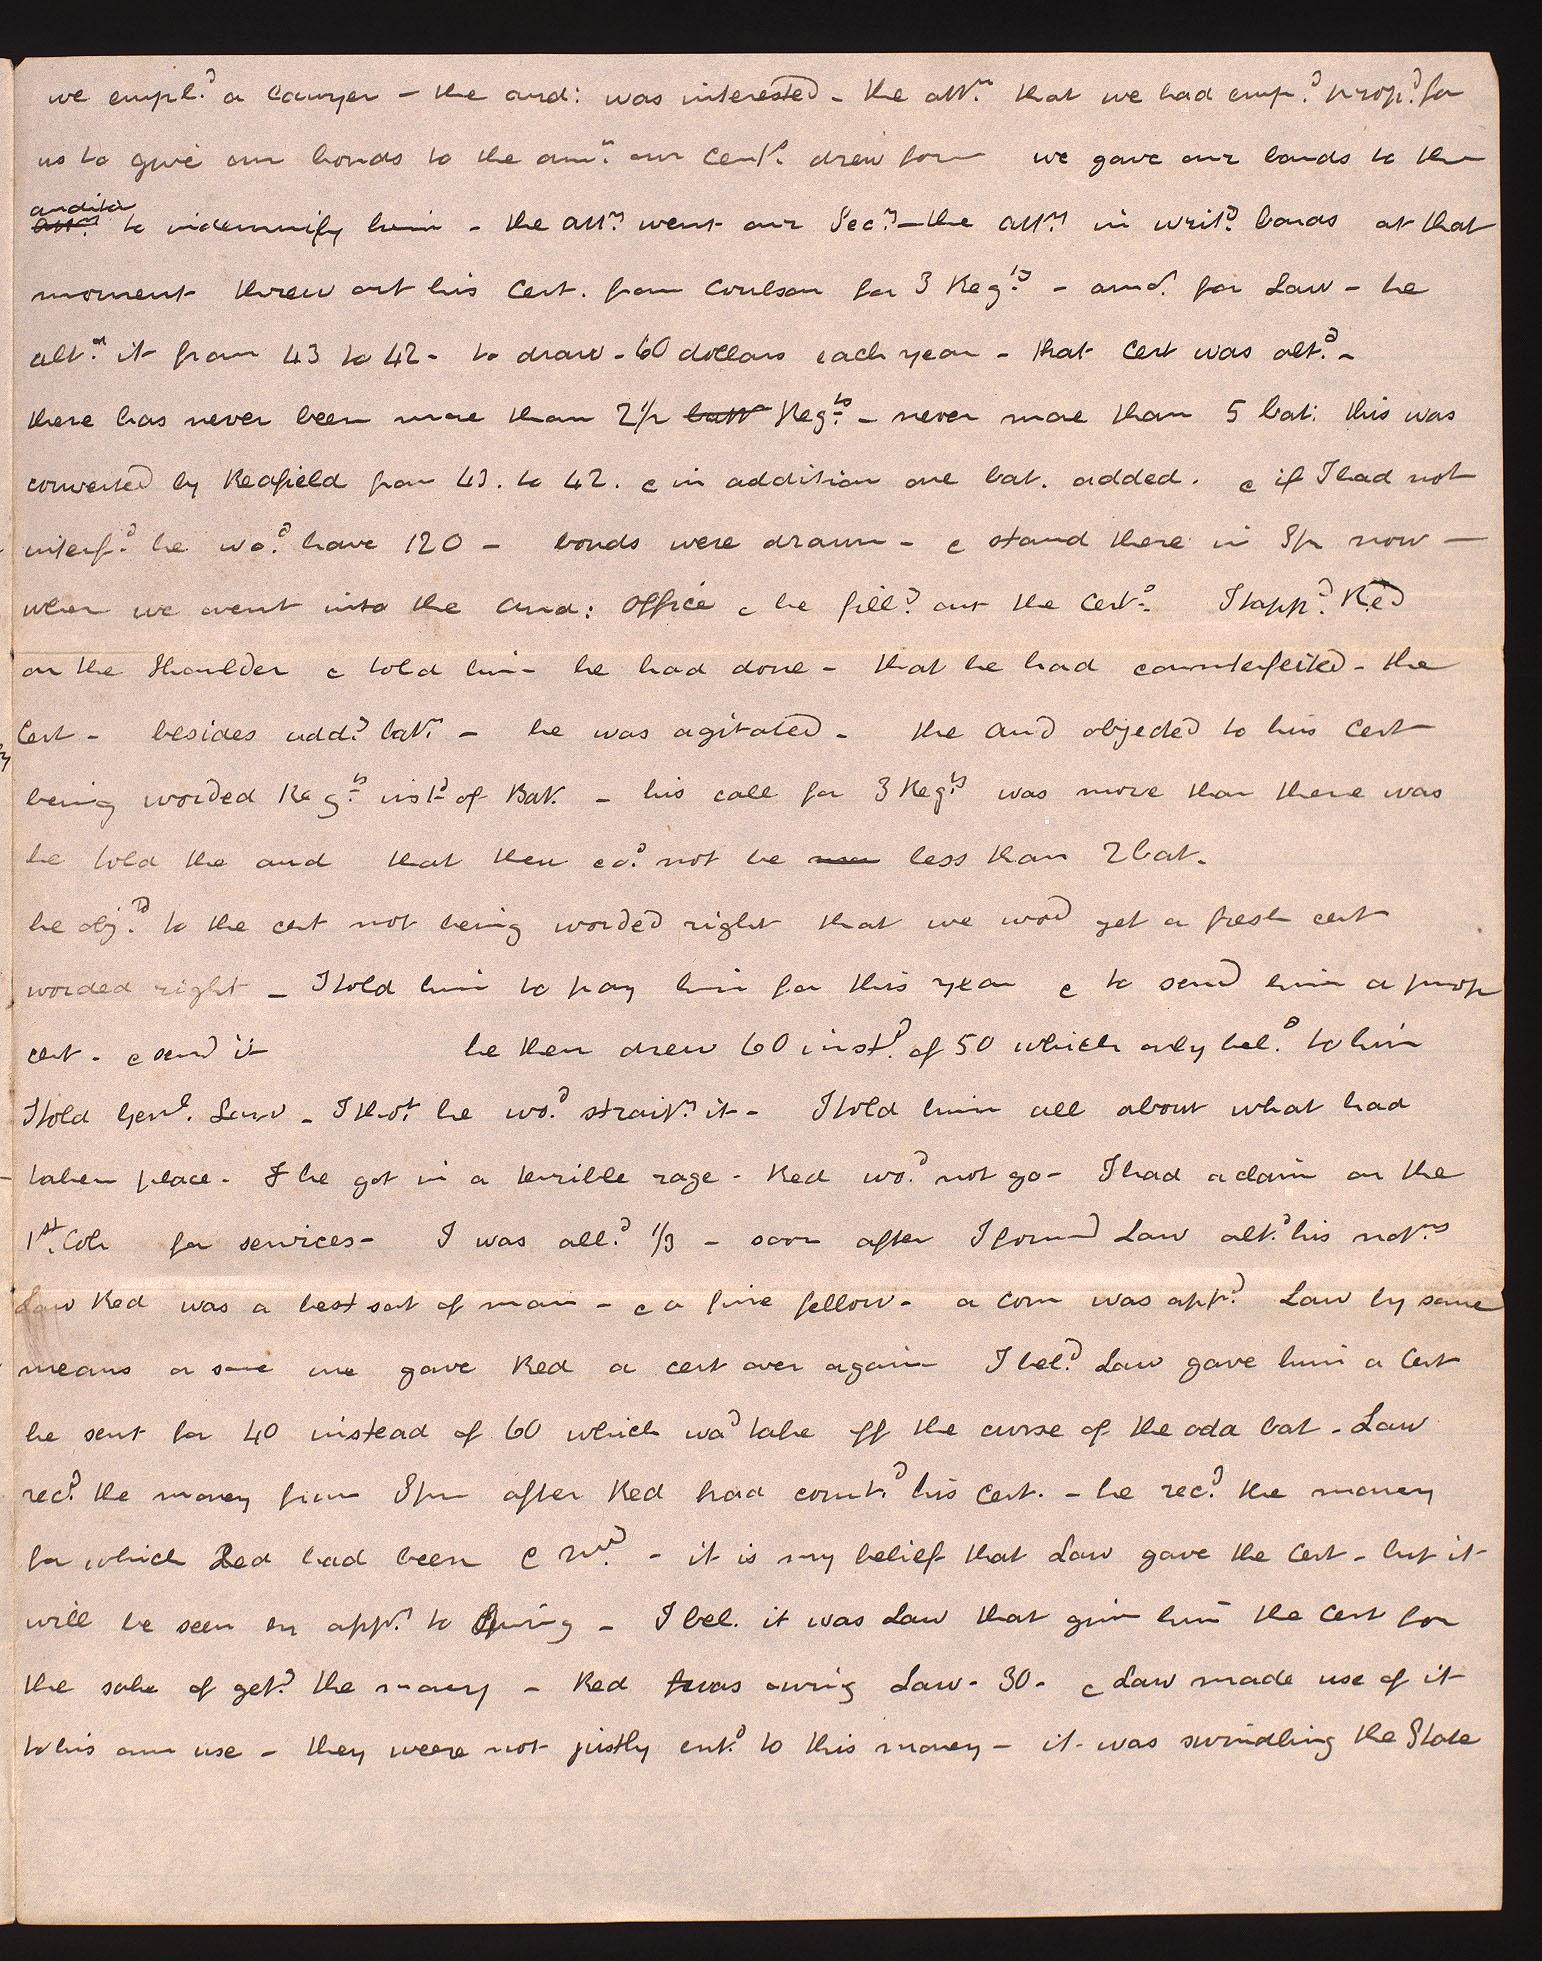 we empl.d a Lawyer - the aud: was interested - the att.y that we had emp.d prop.d for
us to give our bonds to the am.t our Cert.s drew for we gave our bonds to the
auditor
to indemnify him - the att.y went our Sec.y - the att.y in writ.g bonds at that
moment threw out his Cert. from Coulson for 3 Reg.ts - and for Law - he
alt.d it from 43 to 42 - to draw - 60 dollars each year - that Cert was alt.d -
there has never been more than 2 1/2 batt Reg.ts - never more than 5 bat: this was
converted by Redfield from 43. to 42. & in addition one bat. added. & if I had not
interf.d he wo.d have 120 - bonds were drawn - & stand there in Sp now -
when we went into the Aud: Office & he fill.d out the Cert.s I tapp.d Red
on the Shoulder & told him he had done - that he had counterfeited - the
Cert - besides add.g bat.n - he was agitated - the Aud objected to his Cert
being worded Reg.ts inst.d of Bat. - his call for 3 Reg.ts was more than there was
he told the aud that there co.d not be less than 2 bat.
he obj.d to the cert not being worded right that we wod get a fresh cert
worded right - I told him to pay him for this year & to send him a prop
cert - & send it he then drew 60 inst.d of 50 which only bel.d to him
I told Genl. Law - I thot he wo.d strait.n it - I told him all about what had
taken place - & he got in a terrible rage - Red wo.d not go - I had a claim on the
1st. Coh for services - I was all.d 1/3 - soon after I found Law alt.d his not.ns
Law Red was a best sort of man - & a fine fellow - a com was app.d Law by some
means or some one gave Red a cert over again I bel.d Law gave him a Cert
he sent for 40 instead of 60 which wod take off the curse of the odd bat - Law
rec.d the money from Spr after Red had count.d his Cert. - he rec.d the money
for which Red had been - it is my belief that Law gave the Cert - but it
will be seen by app.n to Spring - I bel. it was Law that giv him the Cert for
the sake of get.g the money - Red was owing Law - 30 - & Law made use of it
to his own use - they weere not justly ent.d to this money - it was swindling the State